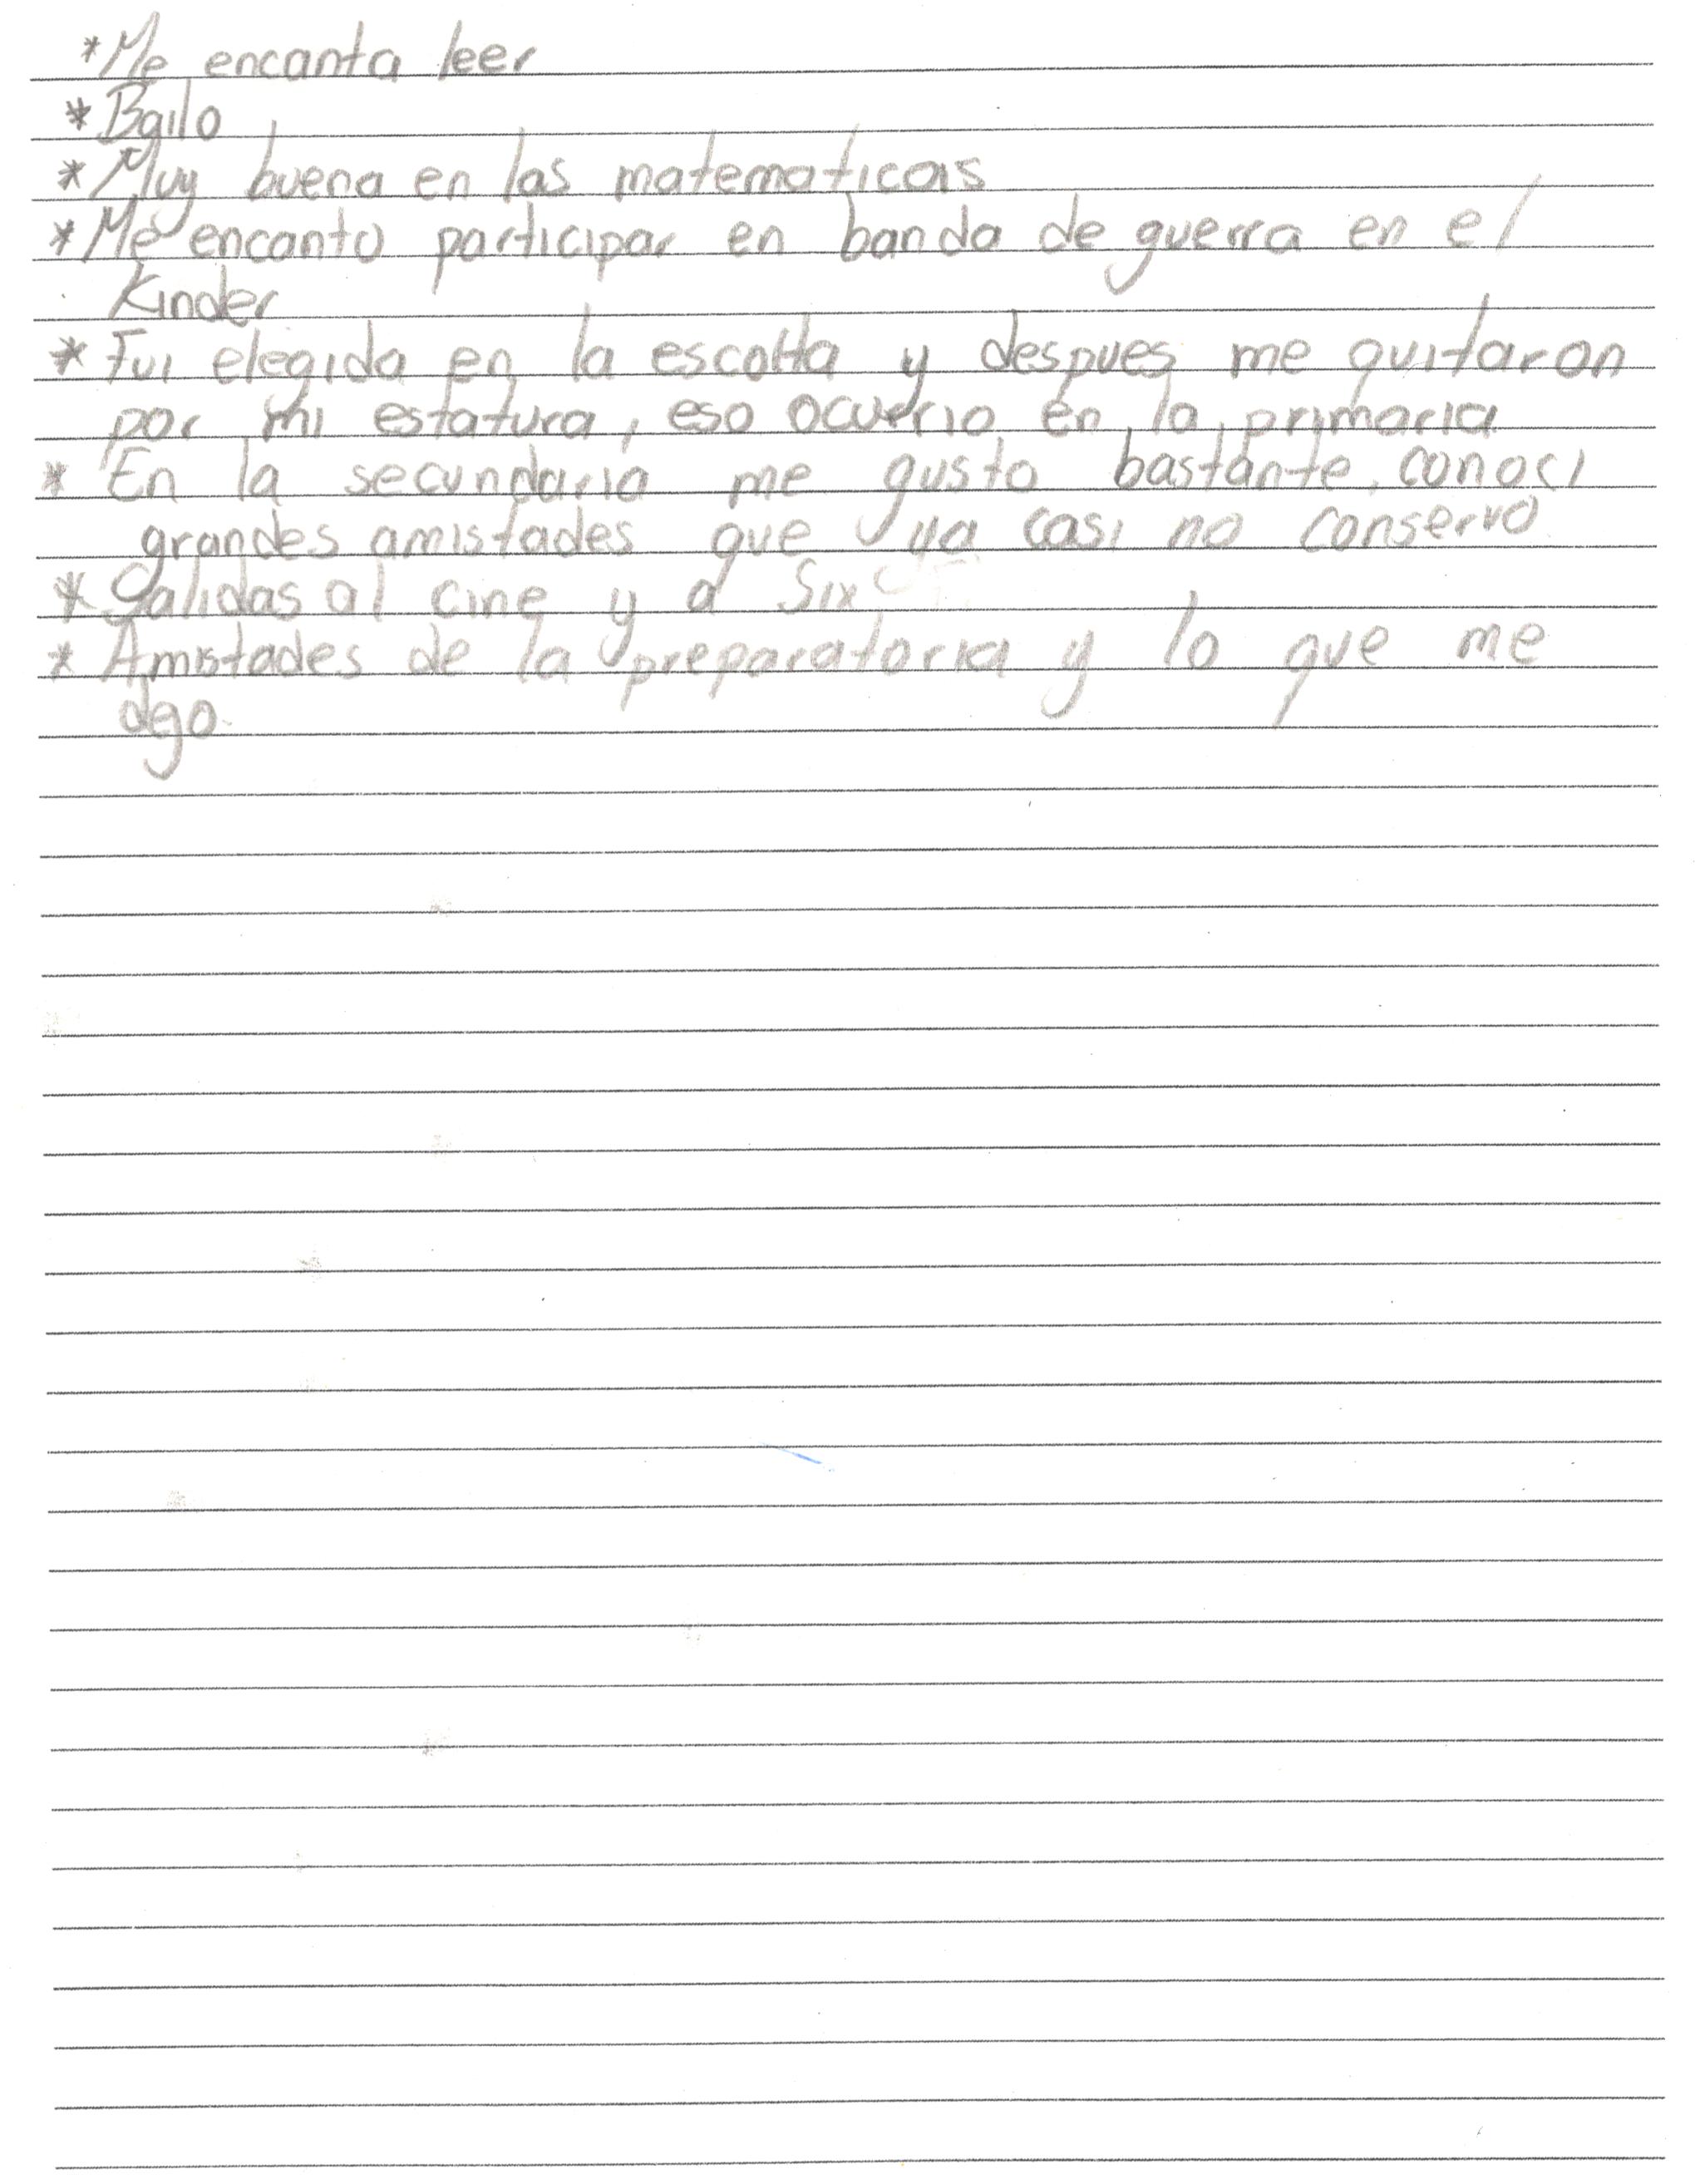 *Me encanta leer
*Bailo
*Muy buena en las matematicas
*Me encanto participar en banda de guerra en el
Kinder
*Fui elegida en la escolta y despues me quitaron
por mi estatura, eso ocurrio en la primaria
* En la secundaria me gusto bastante, conoci
grandes amistades que ya casi no conservo
* Salidas al cine y a Six
* Amistades de la preparatoria y lo que me